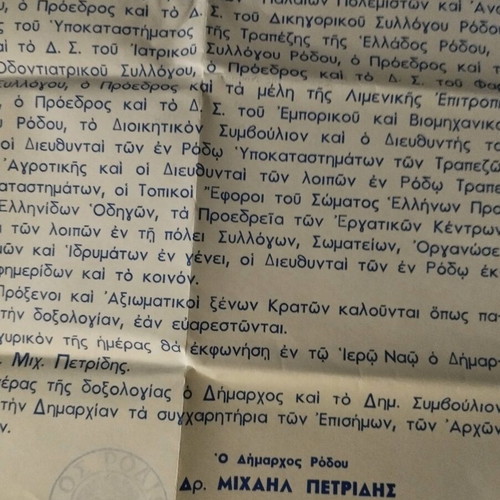 Παλαιῶν Πολεμιστῶν καὶ Ἀνα
υ, ὁ Πρόεδρος καὶ τὸ Δ. Σ. τοῦ Δικηγορικοῦ Συλλόγου Ρόδου
ς τοῦ Ὑποκαταστήματος τῆς Τραπέζης τῆς Ἑλλάδος Ρόδου,
αὶ τὸ Δ. Σ. τοῦ Ἰατρικοῦ Συλλόγου Ρόδου, ὁ Πρόεδρος καὶ τ
Ὀδοντιατρικοῦ Συλλόγου, ὁ Πρόεδρος καὶ τὸ Δ. Σ. τοῦ Φαρ
Συλλόγου, ὁ Πρόεδρος καὶ τὰ μέλη τῆς Λιμενικῆς Ἐπιτροπ
, ὁ Πρόεδρος καὶ τὸ Δ. Σ. τοῦ Ἐμπορικοῦ καὶ Βιομηχανικο
υ Ρόδου, τὸ Διοικητικὸν Συμβούλιον καὶ ὁ Διευθυντὴς το
οἱ Διευθυνταὶ τῶν ἐν Ρόδῳ Ὑποκαταστημάτων τῶν Τραπεζῶ
Ἀγροτικῆς καὶ οἱ Διευθυνταὶ τῶν λοιπῶν ἐν Ρόδῳ Τραπε
καταστημάτων, οἱ Τοπικοὶ Ἔφοροι τοῦ Σώματος Ἑλλήνων Προ
Ἑλληνίδων Ὁδηγῶν, τὰ Προεδρεῖα τῶν Ἐργατικῶν Κέντρων
ι τῶν λοιπῶν ἐν τῇ πόλει Συλλόγων, Σωματείων, Ὀργανώσε
μῶν καὶ Ἱδρυμάτων ἐν γένει, οἱ Διευθυνταὶ τῶν ἐν Ρόδῳ ἐκ
φημερίδων καὶ τὸ κοινόν.
Πρόξενοι καὶ Ἀξιωματικοὶ ξένων Κρατῶν καλοῦνται ὅπως πα
τὴν δοξολογίαν, ἐὰν εὐαρεστῶνται.
γυρικὸν τῆς ἡμέρας θὰ ἐκφωνήσῃ ἐν τῷ Ἱερῷ Ναῷ ὁ Δήμαρ
. Μιχ. Πετρίδης.
έρας τῆς δοξολογίας ὁ Δήμαρχος καὶ τὸ Δημ. Συμβούλιον
τὴν Δημαρχίαν τὰ συγχαρητήρια τῶν Ἐπισήμων, τῶν Ἀρχῶν
ν.
Ὁ Δήμαρχος Ρόδου
Δρ. ΜΙΧΑΗΛ ΠΕΤΡΙΔΗΣ